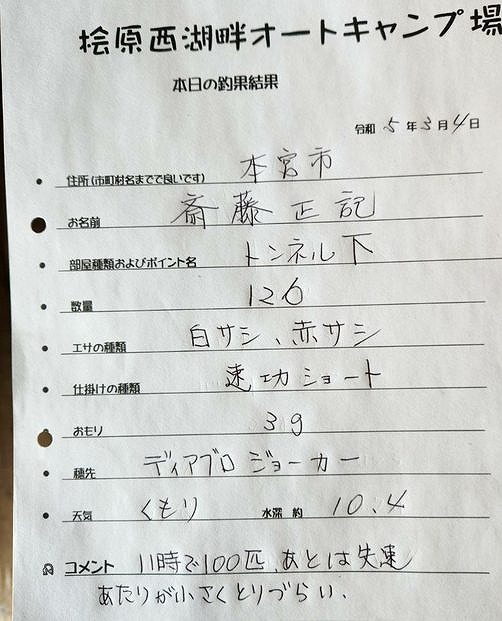 桧原西湖畔オートキャンプ場
本日の釣果結果
令和 5年3月4日
住所(市町村名までで良いです) 本宮市
お名前 斎藤正記
部屋種類およびポイント名 トンネル下
数量 126
エサの種類 白サシ、赤サシ
仕掛けの種類 速功ショート
おもり 3g
穂先 ディアブロ ジョーカー
天気 くもり 水深 約 10.4
コメント 11時で100匹、あとは失速
あたりが小さくとりづらい、